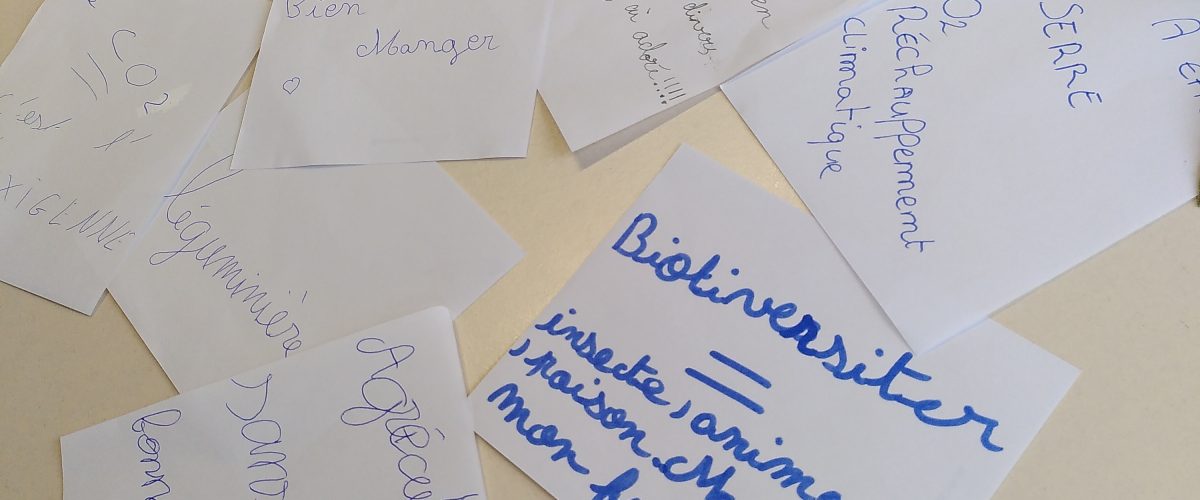 CO2
=
c'est l'
OXIGENNE
Bien
Manger
divers
ai adoré!!!!
CO2
RÉChAuppememt
climatique
SERRE
A
léguminière
Biotiversiter
=
insecte, anime
, poison. M
mon
Agréce
sans
bonn